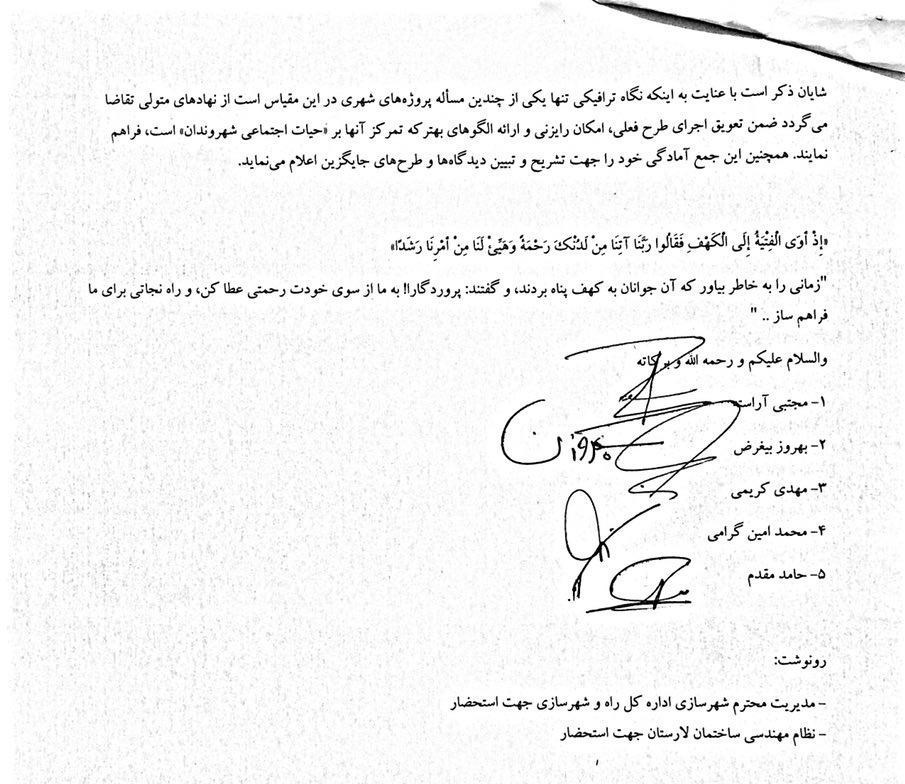 شایان ذکر است با عنایت به اینکه نگاه ترافیکی تنها یکی از چندین مسأله پروژه‌های شهری در این مقیاس است از نهادهای متولی تقاضا
می‌گردد ضمن تعویق اجرای طرح فعلی، امکان رایزنی و ارائه الگوهای بهترکه تمرکز آنها بر «حیات اجتماعی شهروندان» است، فراهم
نمایند. همچنین این جمع آمادگی خود را جهت تشریح و تبیین دیدگاه‌ها و طرح‌های جایگزین اعلام می‌نماید.
«إِذْ أَوَى الْفِتْيَةُ إِلَى الْكَهْفِ فَقَالُوا رَبَّنَا آتِنَا مِنْ لَدُنْكَ رَحْمَةً وَهَيِّئْ لَنَا مِنْ أَمْرِنَا رَشَدًا»
"زمانی را به خاطر بیاور که آن جوانان به کهف پناه بردند، و گفتند: پروردگارا! به ما از سوی خودت رحمتی عطا کن، و راه نجاتی برای ما
فراهم ساز .. "
والسلام علیکم و رحمه الله و برکاته
۱- مجتبی آراسته
۲- بهروز بیغرض
۳- مهدی کریمی
۴- محمد امین گرامی
۵- حامد مقدم
رونوشت:
- مدیریت محترم شهرسازی اداره کل راه و شهرسازی جهت استحضار
- نظام مهندسی ساختمان لارستان جهت استحضار